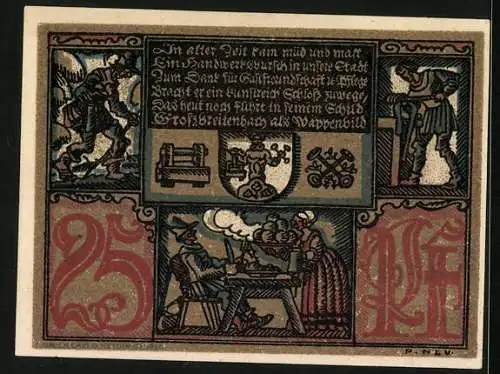 In alter Zeit kam müd und matt
Ein Handwerksbursch in unsre Stadt
Zum Dank für Gastfreundschaft u. Pflege
Bracht er ein kunstreich Schloß zuwege
Das heut noch führt in seinem Schild
Großbreitenbach als Wappenbild
25 Pf
P. NEU.